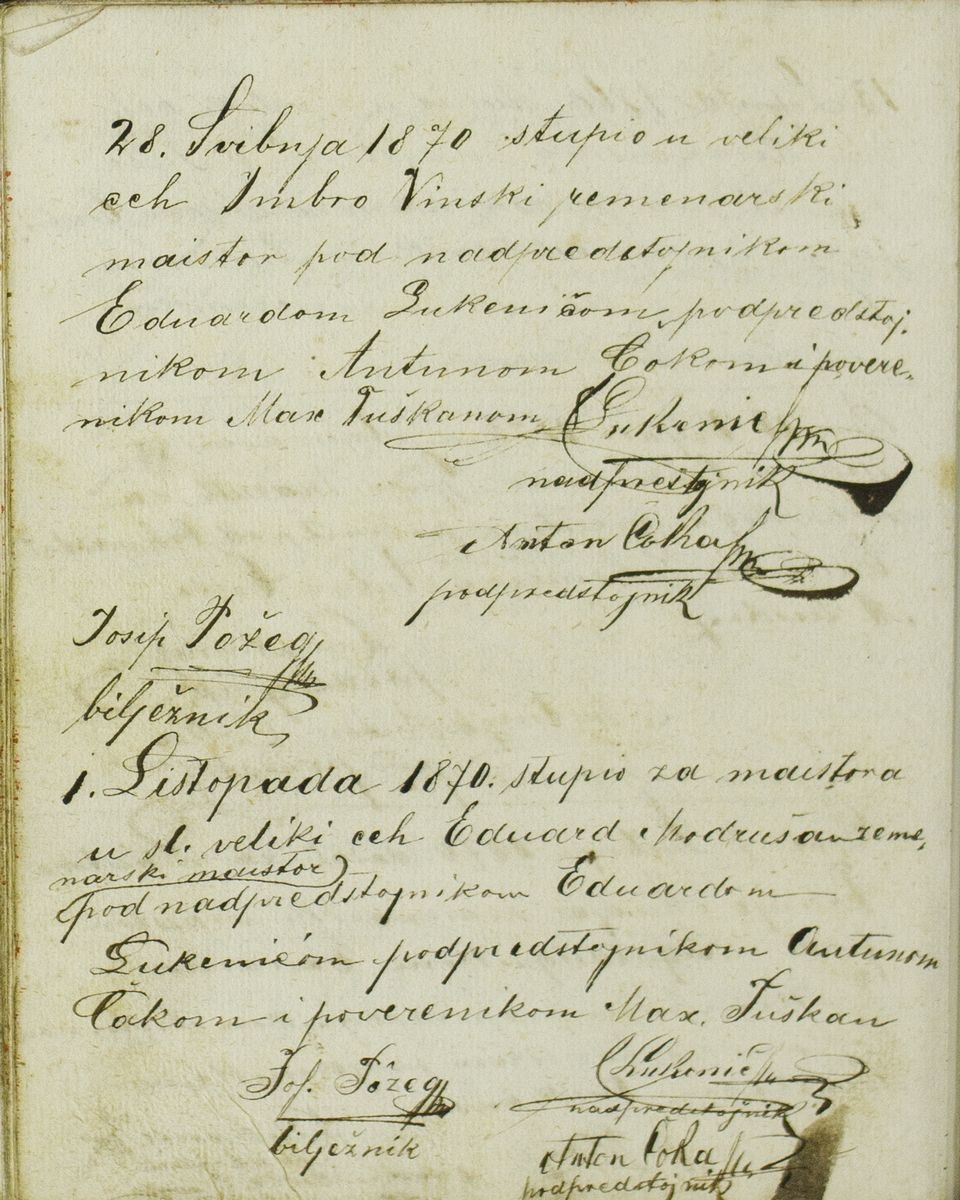 28. Svibnja 1870 stupio u veliki
ceh Imbro Vinski remenarski
maistor pod nadpredstojnikom
Eduardom Lukenićom, podpredstoj-
nikom Antunom Čokom i povere-
nikom Max Tuškanom
Lukenić
nadprestojnik
Anton Čoka
podpredstojnik
Josip Požeg
bilježnik
1. Listopada 1870. stupio za maistora
u sl. veliki ceh Eduard Modrušan reme-
narski maistor
pod nadpredstojnikom Eduardom
Lukenićom podpredstojnikom Antunom
Čakom i poverenikom Max. Tuškan
Jos. Požeg
bilježnik
Lukenić
nadpredstojnik
Anton Čoka
podpredstojnik